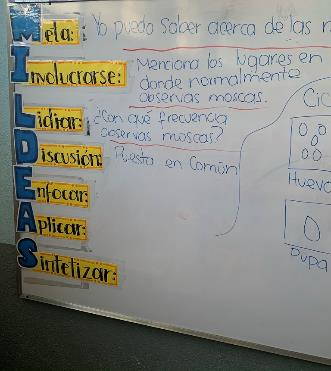 Meta: Yo puedo saber acerca de las
Involucrarse: Menciona los lugares en
donde normalmente
observas moscas.
Lidiar: ¿Con qué frecuencia
observas moscas?
Discusión: Puesta en Común
Enfocar:
Aplicar:
Sintetizar:
Cic
Huevo
pupa